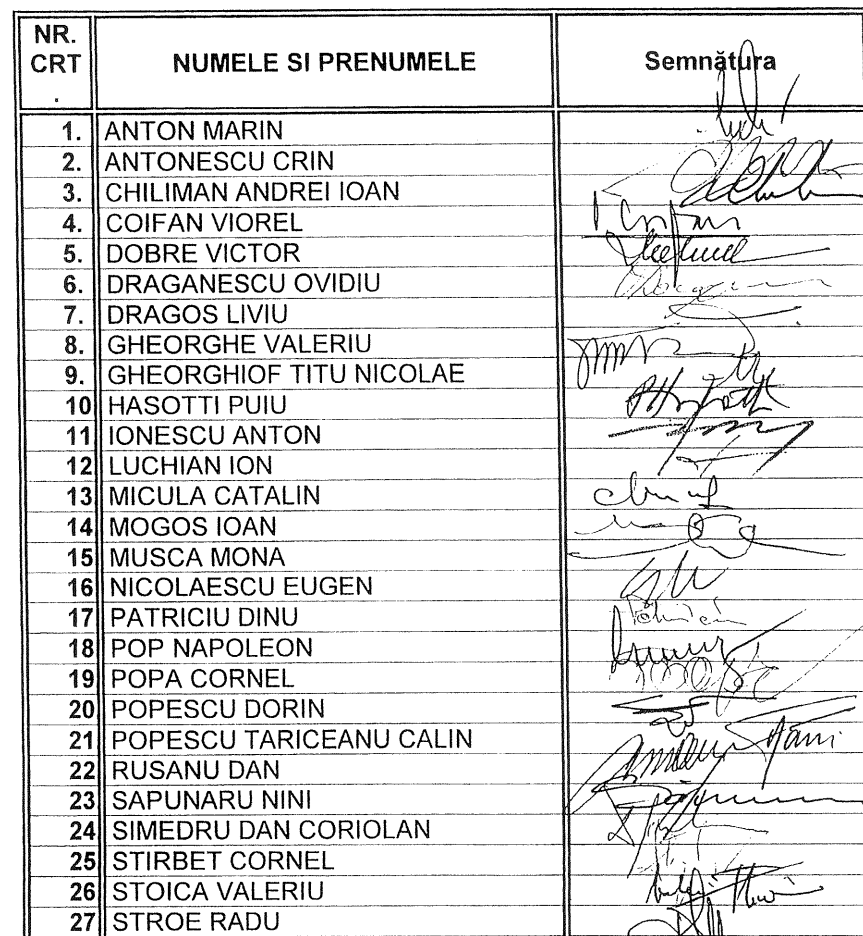 NR. CRT . NUMELE SI PRENUMELE Semnătura
1. ANTON MARIN
2. ANTONESCU CRIN
3. CHILIMAN ANDREI IOAN
4. COIFAN VIOREL
5. DOBRE VICTOR
6. DRAGANESCU OVIDIU
7. DRAGOS LIVIU
8. GHEORGHE VALERIU
9. GHEORGHIOF TITU NICOLAE
10 HASOTTI PUIU
11 IONESCU ANTON
12 LUCHIAN ION
13 MICULA CATALIN
14 MOGOS IOAN
15 MUSCA MONA
16 NICOLAESCU EUGEN
17 PATRICIU DINU
18 POP NAPOLEON
19 POPA CORNEL
20 POPESCU DORIN
21 POPESCU TARICEANU CALIN
22 RUSANU DAN
23 SAPUNARU NINI
24 SIMEDRU DAN CORIOLAN
25 STIRBET CORNEL
26 STOICA VALERIU
27 STROE RADU